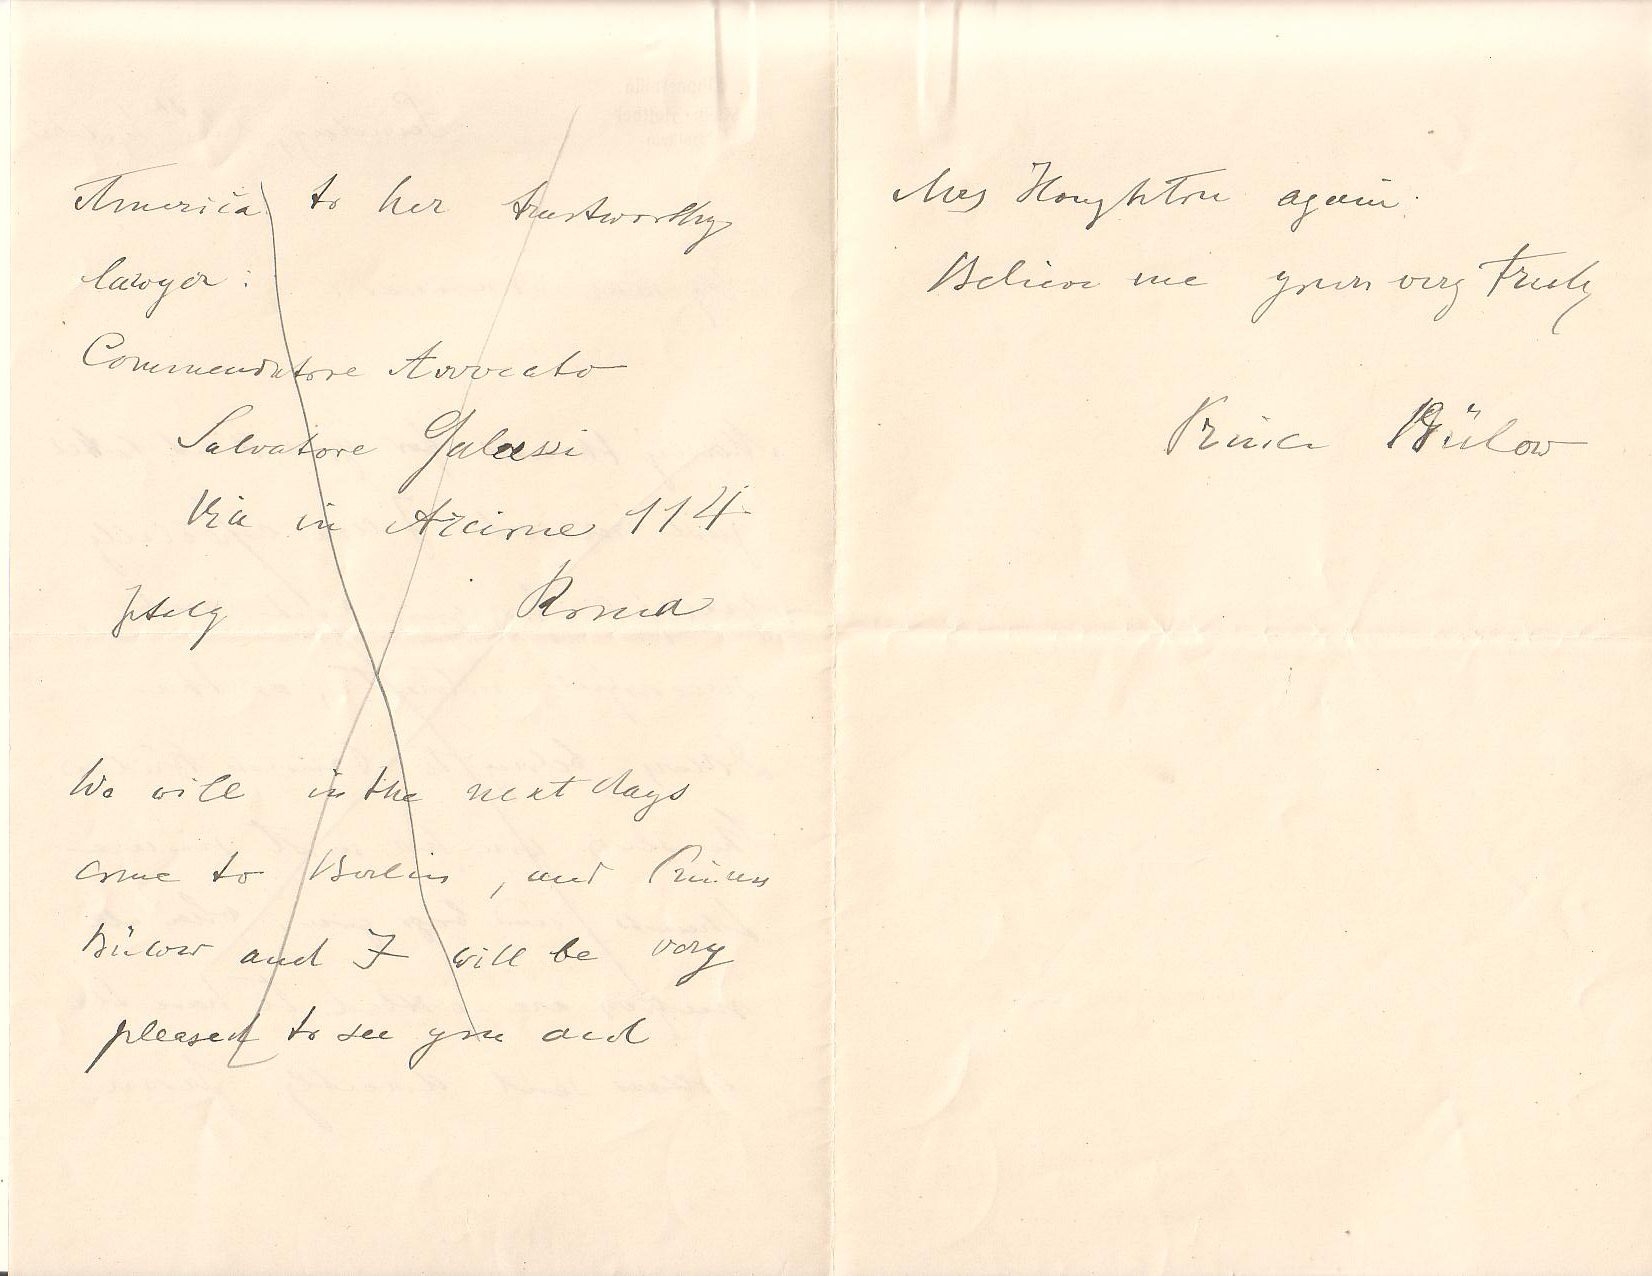 America to her trustworthy
lawyer:
Commendatore Avvocato
Salvatore Galassi
Via in Arcione 114
Italy Roma
We will in the next days
come to Berlin, and Princess
Bülow and I will be very
pleased to see you and
Mrs Houghton again.
Believe me yours very truly
Prince Bülow